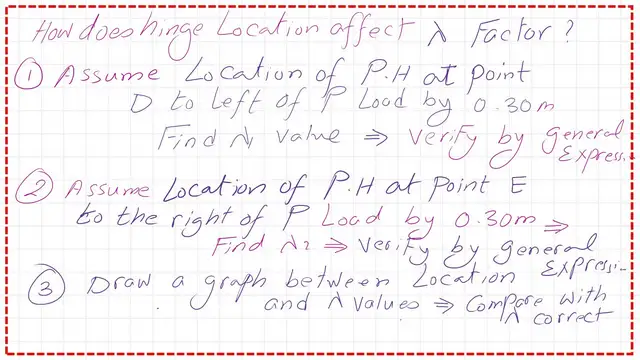 How does hinge Location affect λ Factor?
① Assume Location of P.H at point
D to left of P Load by 0.30m
Find λ₁ value ⇒ Verify by general
Express.
② Assume Location of P.H at point E
to the right of P Load by 0.30m ⇒
Find λ₂ ⇒ Verify by general
Expressi-
③ Draw a graph between Location
and λ values ⇒ Compare with
λ correct